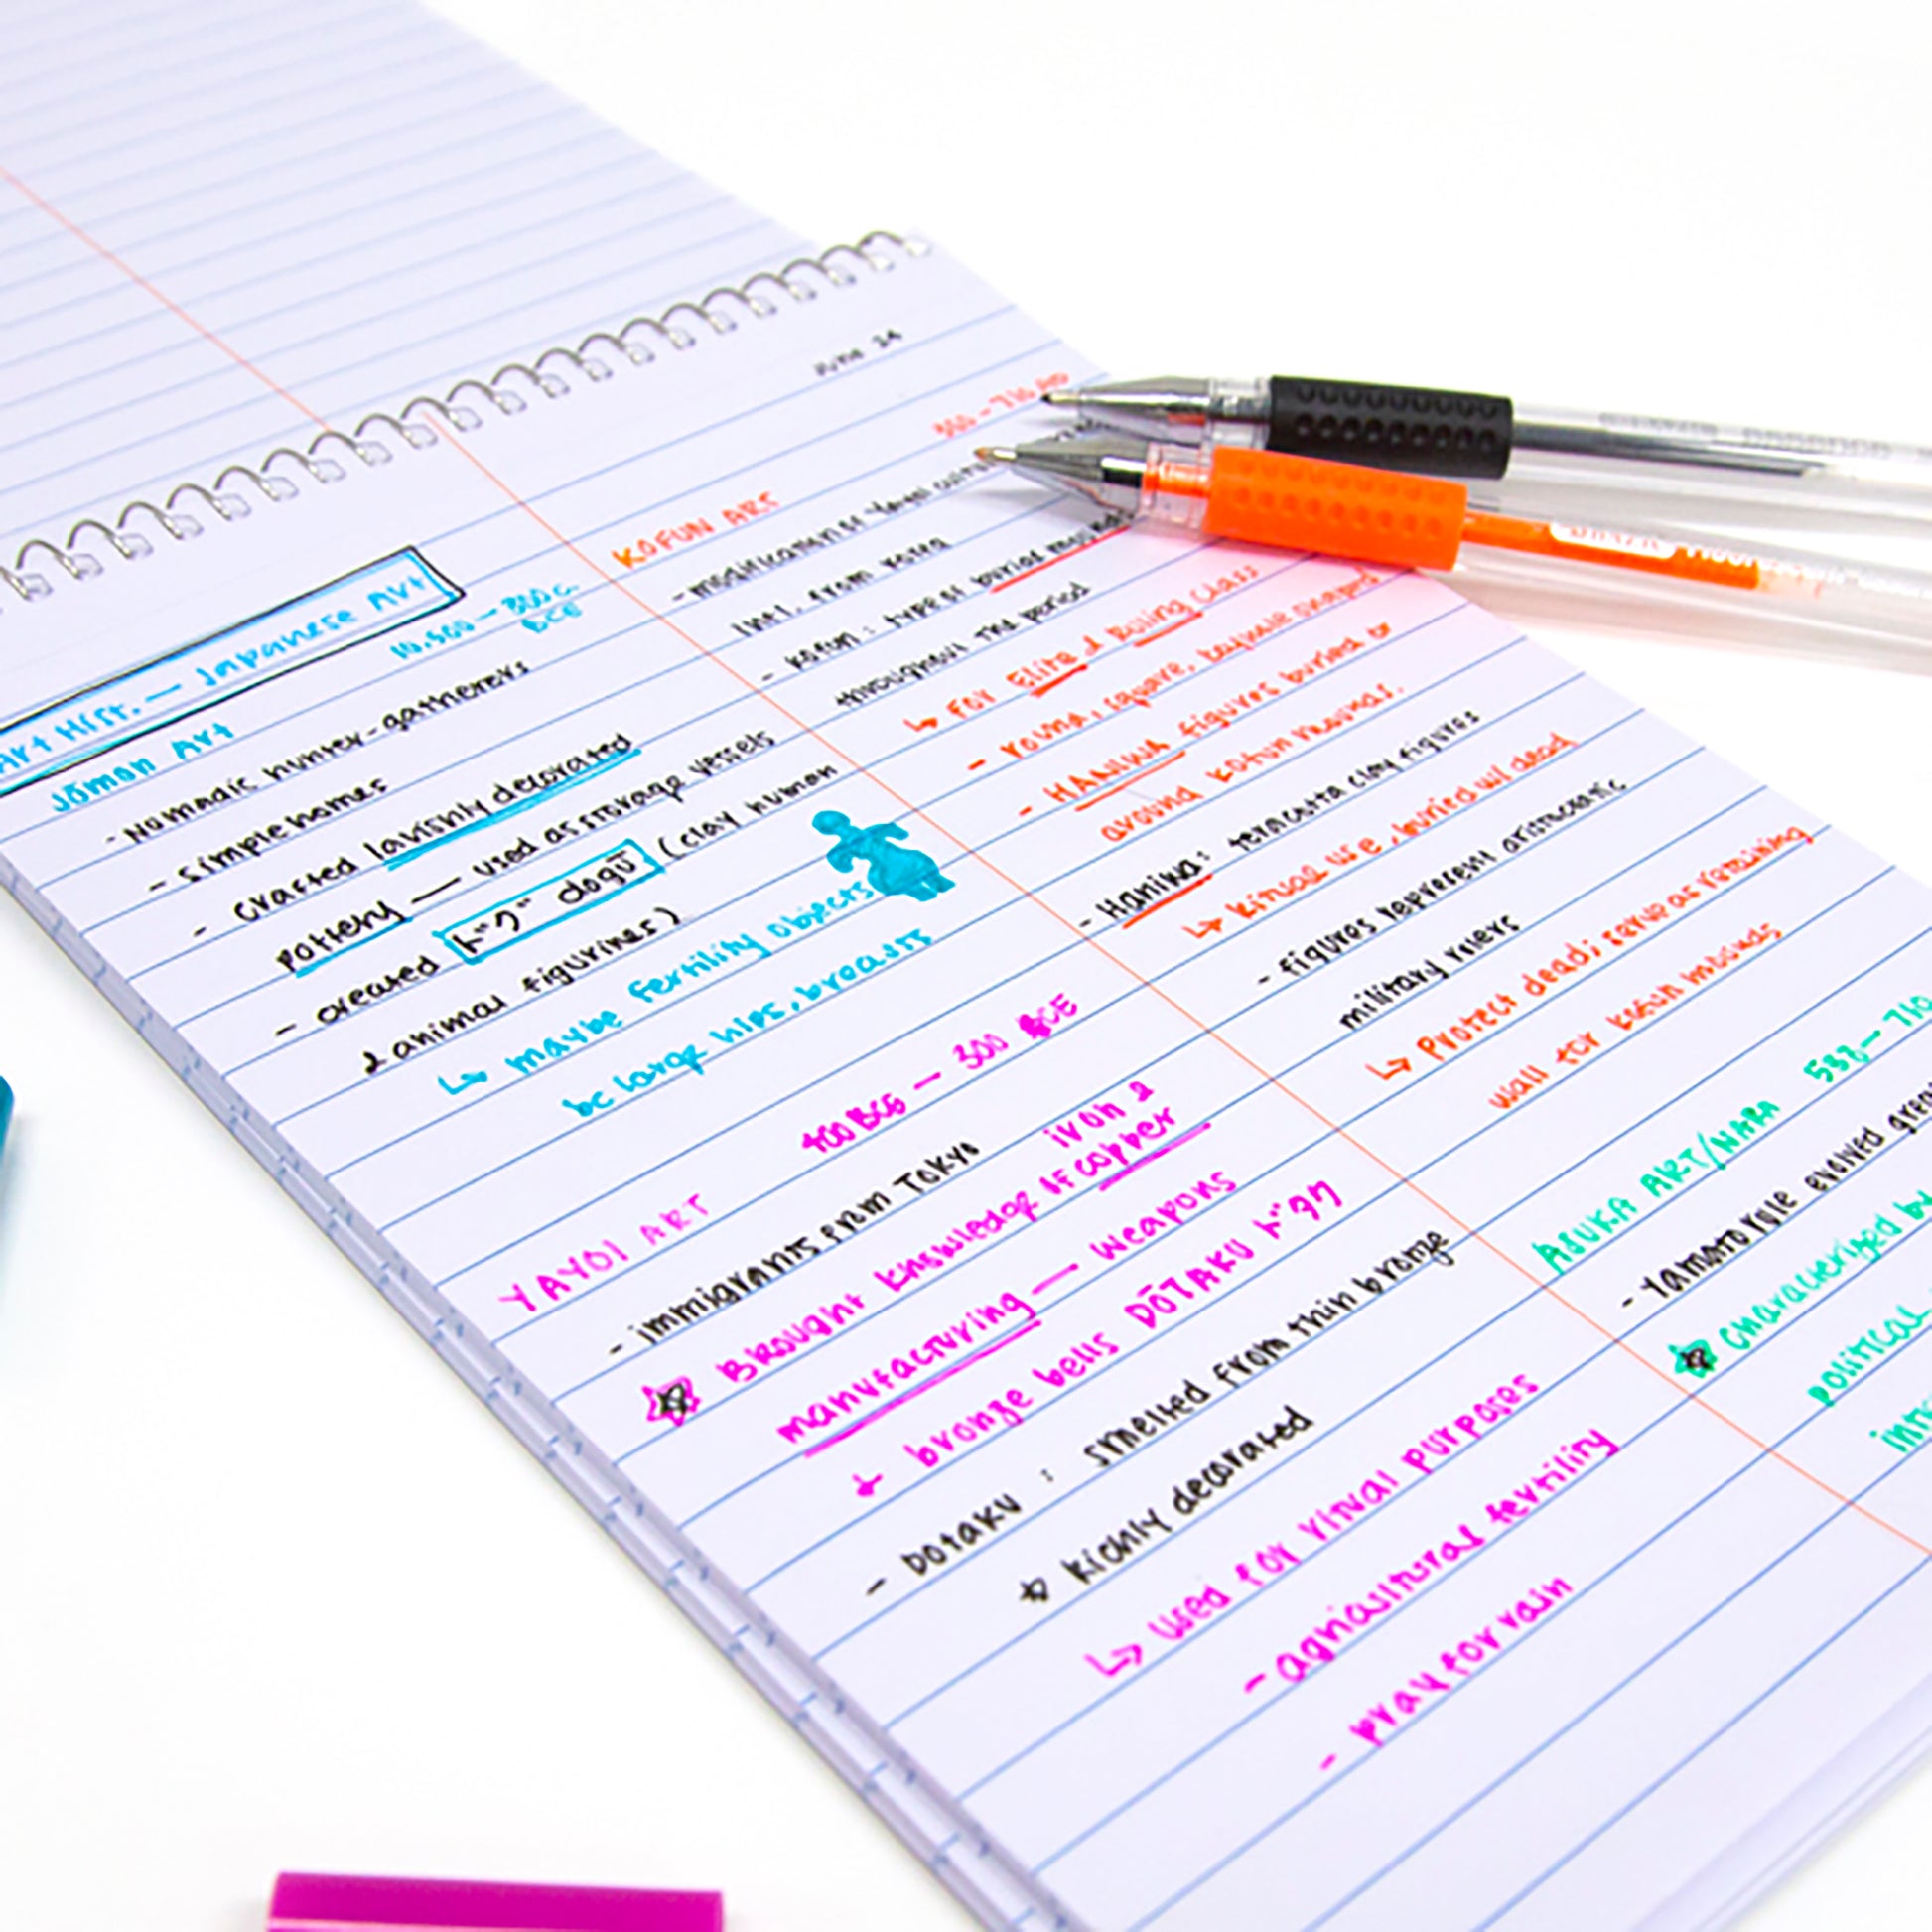 June 24
Art Hist. — Japanese Art
Jōman Art
10,500 — 300 c.
BCE
- Nomadic hunter-gatherers
- simple homes
- crafted lavishly decorated
pottery — used as storage vessels
- created ドグ" dogū (clay human
& animal figurines)
↳ maybe fertility objects
bc large hips, breasts
YAYOI ART
400 BCE — 300 BCE
- immigrants from Tokyo
iron &
☆ Brought knowledge of copper
manufacturing — weapons
↳ bronze bells DŌTAKU ドグ
- Dotaku : smelted from thin bronze
☆ Richly decorated
↳ used for ritual purposes
- agricultural fertility
- pray for rain
KOFUN ART
300 - 710 AD
- modification of Yayoi
infl. from
- Kofun : type of burial
throughout the period
↳ For Elite & Ruling Class
- round, square, keyhole shaped
- HANIWA figures buried or
around kofun mounds.
- Haniwa: terracotta clay figures
↳ Ritual use, buried w/ dead
- figures represent aristocratic
military rulers
↳ Protect dead; serve as retaining
wall for kofun mounds
ASUKA ART/NARA
- Yamato rule evolved
☆ Characterized by
political